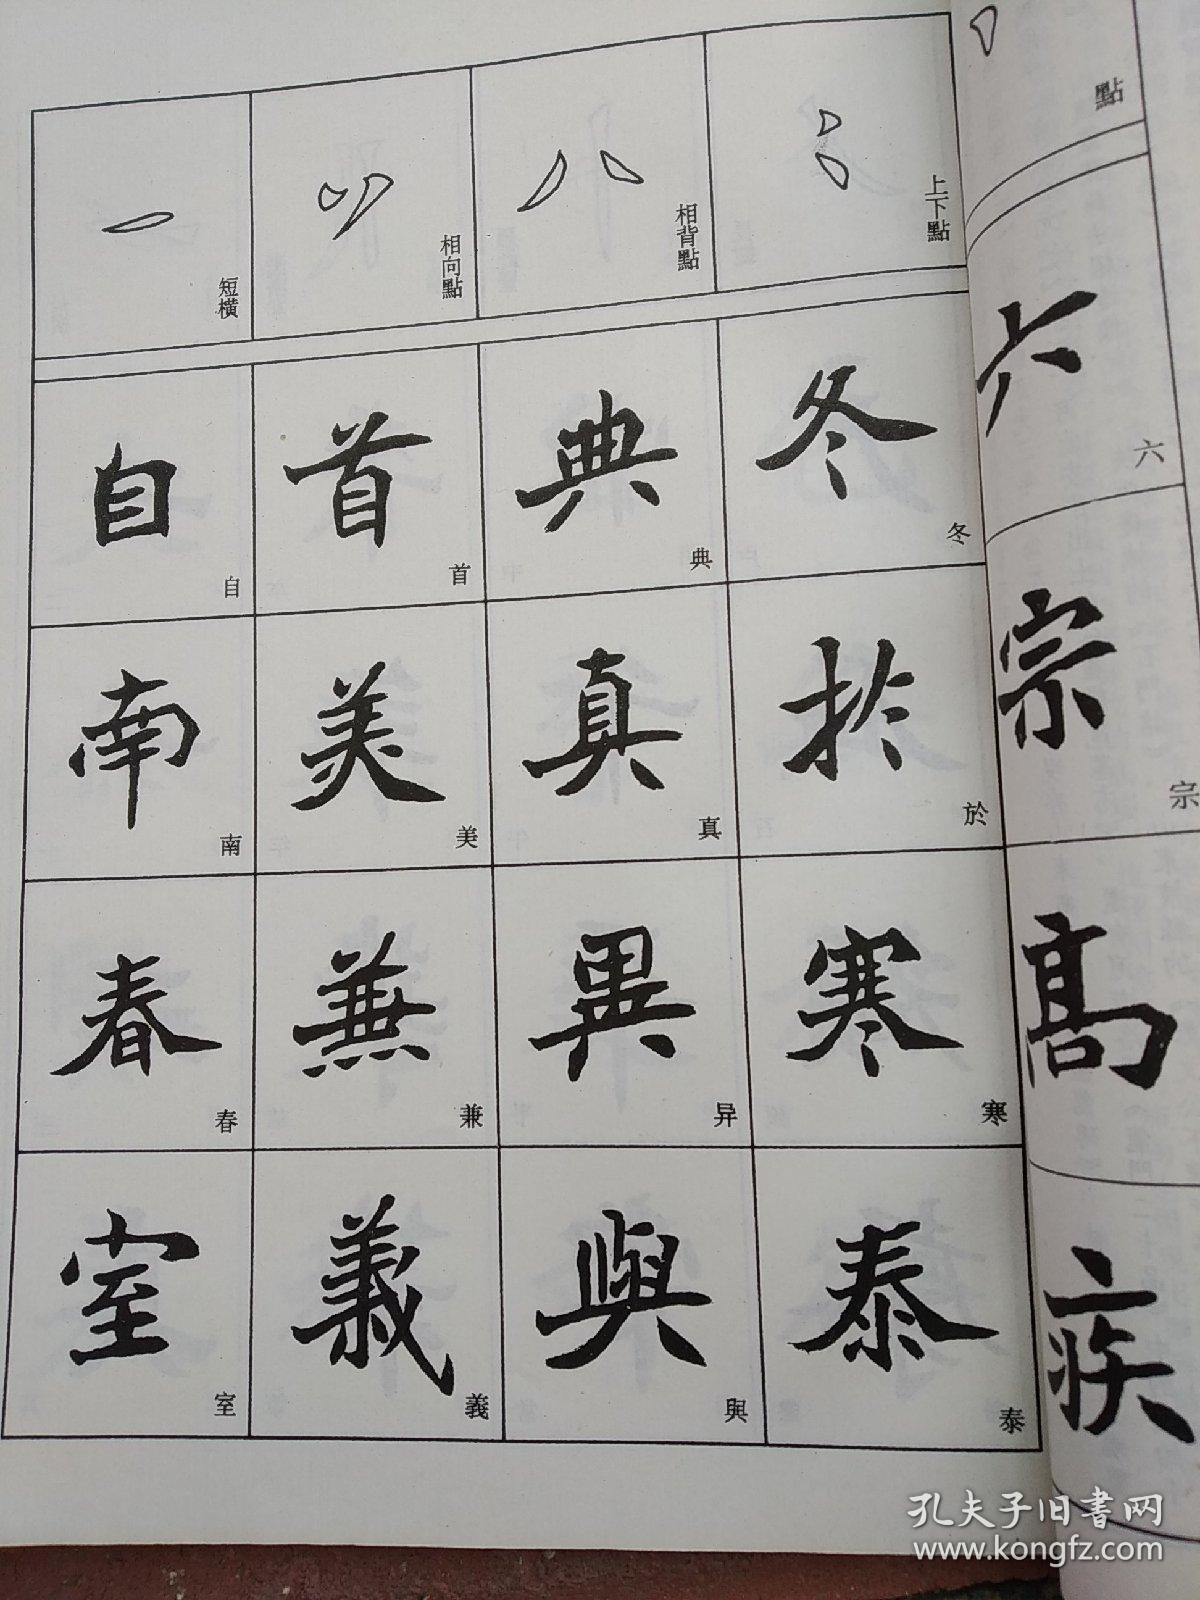 點
六 六
宗 宗
高
疾
上下點
冬 冬
於 於
寒 寒
泰 泰
相背點
典 典
真 真
異 异
與 與
相向點
首 首
美 美
兼 兼
義 義
短橫
自 自
南 南
春 春
室 室
孔夫子旧书网
www.kongfz.com